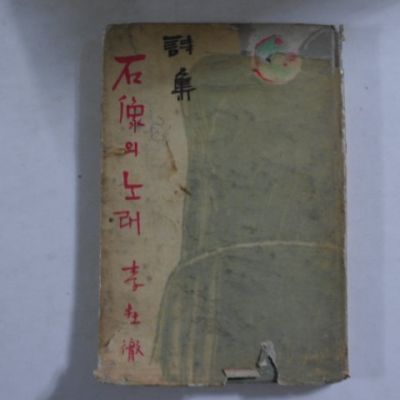 詩集
石像의 노래 李在徹